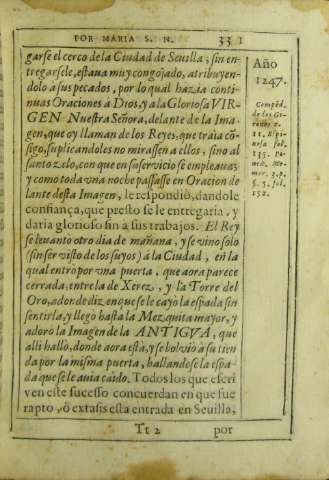 POR MARIA S. N. 331
garse el cerco de la Ciudad de Sevilla; sin en
tregarsele, estaua muy congojado, atribuyen-
dolo à sus pecados, por lo qual hazia conti-
nuas Oraciones à Dios, y à la Gloriosa VIR-
GEN Nuestra Señora, delante de la Ima
gen, que oy llaman de los Reyes, que traìa cõ-
sigo, suplicandoles no mirassen à ellos, sino al
santo zelo, con que en su servicio se empleaua;
y como toda vna noche passasse en Oracion de
lante desta Imagen, le respondiò, dandole
confiança, que presto se le entregaria, y
daria glorioso fin à sus trabajos. El Rey
se levantò otro dia de mañana, y se vino solo
(sin ser visto de los suyos) à la Ciudad, en la
qual entrò por vna puerta, que aora parece
cerrada, entre la de Xerez, y la Torre del
Oro, adonde dizen que se le cayò la espada sin
sentirla, y llegò hasta la Mezquita mayor, y
adorò la Imagen de la ANTIGVA, que
alli hallò, donde aora està, y se bolviò à su tien
da por la misma puerta, hallandose la espa-
da que se le auia caido. Todos los que escri
ven este sucesso concuerdan en que fue
rapto, ò extasis esta entrada en Sevilla,
Tt 2 por
Año
1247.
Compẽd.
de los Gi-
11. Espi-
nosa fol.
135. Pi-
ned. Me-
mor. 3. p.
§. 3. fol.
152.